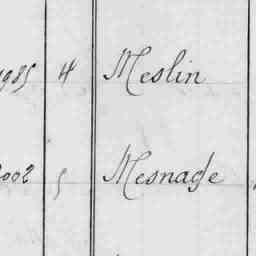 1985 4 Meslin
2002 5 Mesnage